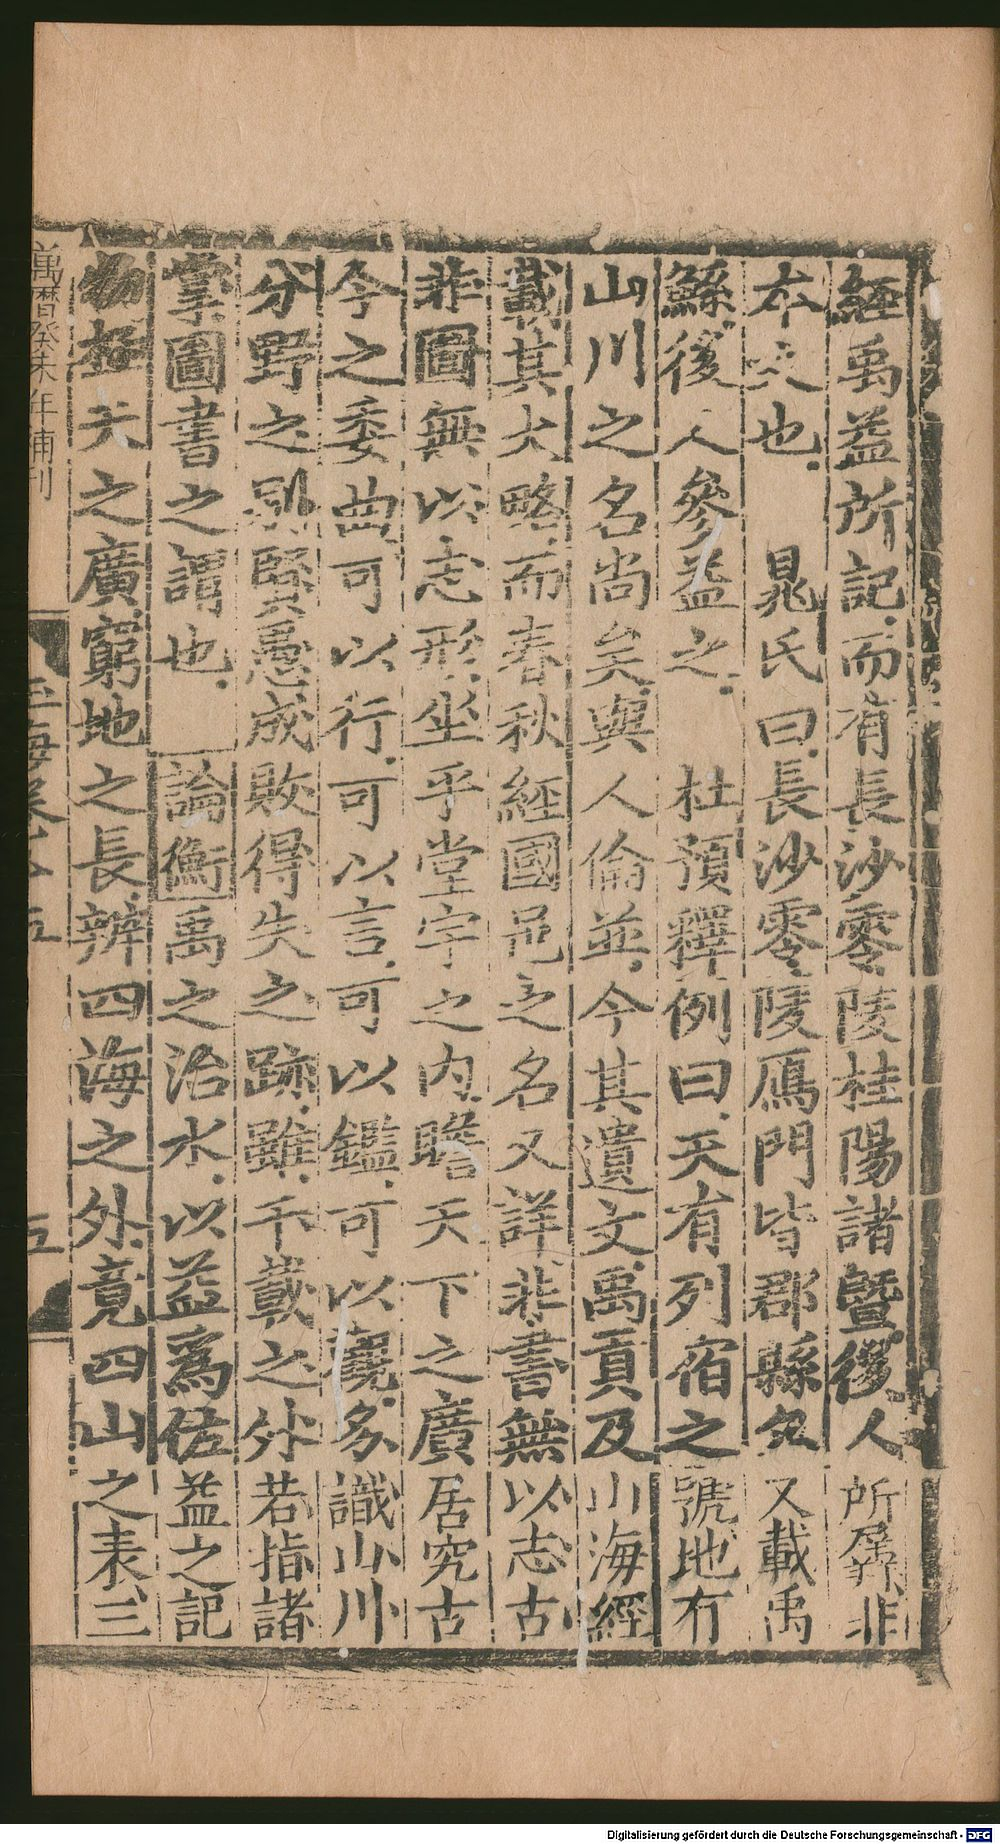 經禹益所記而有長沙零陵桂陽諸曁後人所羼非
本文也 晁氏曰長沙零陵鴈門皆郡縣名又載禹
鯀後人參益之 杜預釋例曰天有列宿之號地有
山川之名尚矣與人倫並今其遺文禹貢及山海經
載其大略而春秋經國邑之名又詳非書無以志古
非圖無以志形坐乎堂宇之內瞻天下之廣居究古
今之委曲可以行可以言可以鑑可以觀多識山川
分野之別賢愚成敗得失之跡雖千載之外若指諸
掌圖書之謂也 論衡禹之治水以益爲佐益之記
物極天之廣窮地之長辨四海之外竟四山之表三
萬曆癸未年補刊
玉海卷十五
五
Digitalisierung gefördert durch die Deutsche Forschungsgemeinschaft - DFG